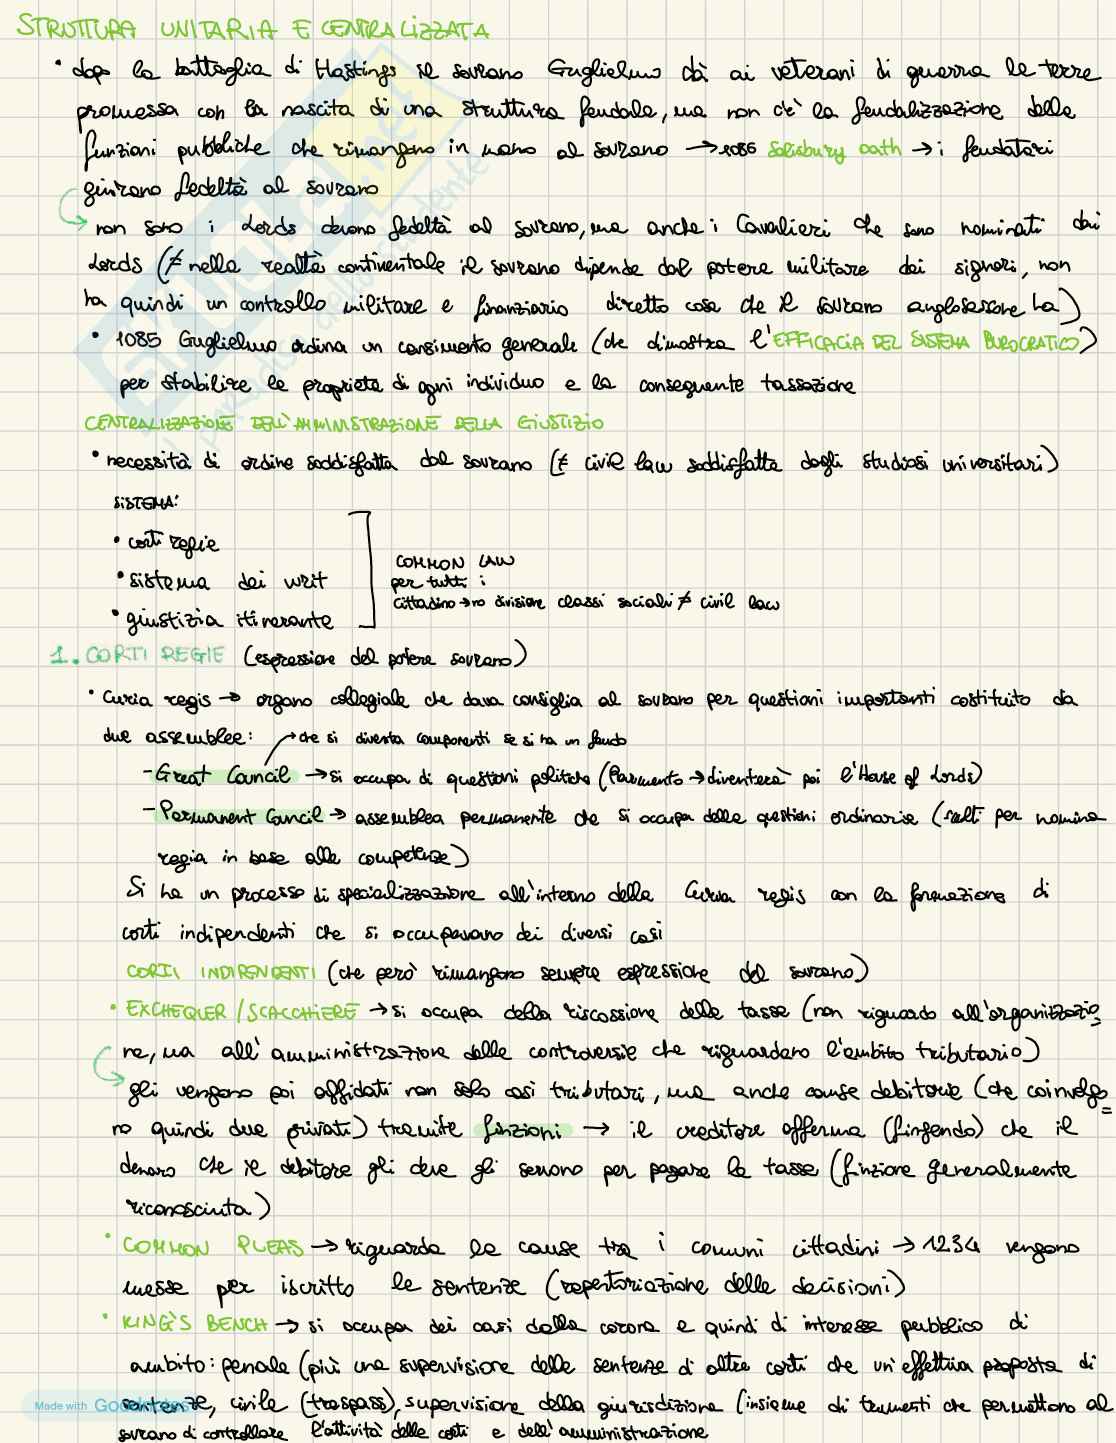 STRUTTURA UNITARIA E CENTRALIZZATA
• dopo la battaglia di Hastings il sovrano Guglielmo dà ai veterani di guerra le terre
promessa con la nascita di una struttura feudale, ma non c'è la feudalizzazione delle
funzioni pubbliche che rimangono in mano al sovrano → 1086 Salisbury oath → i feudatari
giurano fedeltà al sovrano
non solo i Lords devono fedeltà al sovrano, ma anche i Cavalieri che sono nominati dai
Lords (≠ nella realtà continentale il sovrano dipende dal potere militare dei signori, non
ha quindi un controllo militare e finanziario diretto cosa che il sovrano anglosassone ha)
• 1085 Guglielmo ordina un censimento generale (che dimostra l'EFFICACIA DEL SISTEMA BUROCRATICO)
per stabilire le proprietà di ogni individuo e la conseguente tassazione
CENTRALIZZAZIONE DELL'AMMINISTRAZIONE DELLA GIUSTIZIO
• necessità di ordine soddisfatta dal sovrano (≠ civil law soddisfatta dagli studiosi universitari)
SISTEMA:
• corti regie
• sistema dei writ
• giustizia itinerante
COMMON LAW
per tutti i
cittadino → no divisione classi sociali ≠ civil law
1. CORTI REGIE (espressione del potere sovrano)
• Curia regis → organo collegiale che dava consiglia al sovrano per questioni importanti costituito da
due assemblee: → che si diventa componenti se si ha un feudo
- Great Council → si occupa di questioni politiche (Parlamento → diventerà poi l'House of Lords)
- Permanent Council → assemblea permanente che si occupa delle questioni ordinarie (scelti per nomina
regia in base alle competenze)
Si ha un processo di specializzazione all'interno della Curia regis con la formazione di
corti indipendenti che si occupavano dei diversi casi
CORTI INDIPENDENTI (che però rimangono sempre espressione del sovrano)
• EXCHEQUER / SCACCHIERE → si occupa della riscossione delle tasse (non riguardo all'organizzazio_
ne, ma all'amministrazione delle controversie che riguardano l'ambito tributario)
gli vengono poi affidati non solo casi tributari, ma anche cause debitorie (che coinvolgo=
no quindi due privati) tramite finzioni → il creditore afferma (fingendo) che il
denaro che il debitore gli deve gli servono per pagare le tasse (finzione generalmente
riconosciuta)
• COMMON PLEAS → riguarda le cause tra i comuni cittadini → 1234 vengono
messe per iscritto le sentenze (repertoriazione delle decisioni)
• KING'S BENCH → si occupa dei casi della corona e quindi di interesse pubblico di
ambito: penale (più una supervisione delle sentenze di altre corti che un'effettiva proposta di
sentenze, civile (trespass), supervisione della giurisdizione (insieme di trumenti che permettono al
sovrano di controllare l'attività delle corti e dell'amministrazione
Made with Goodnotes